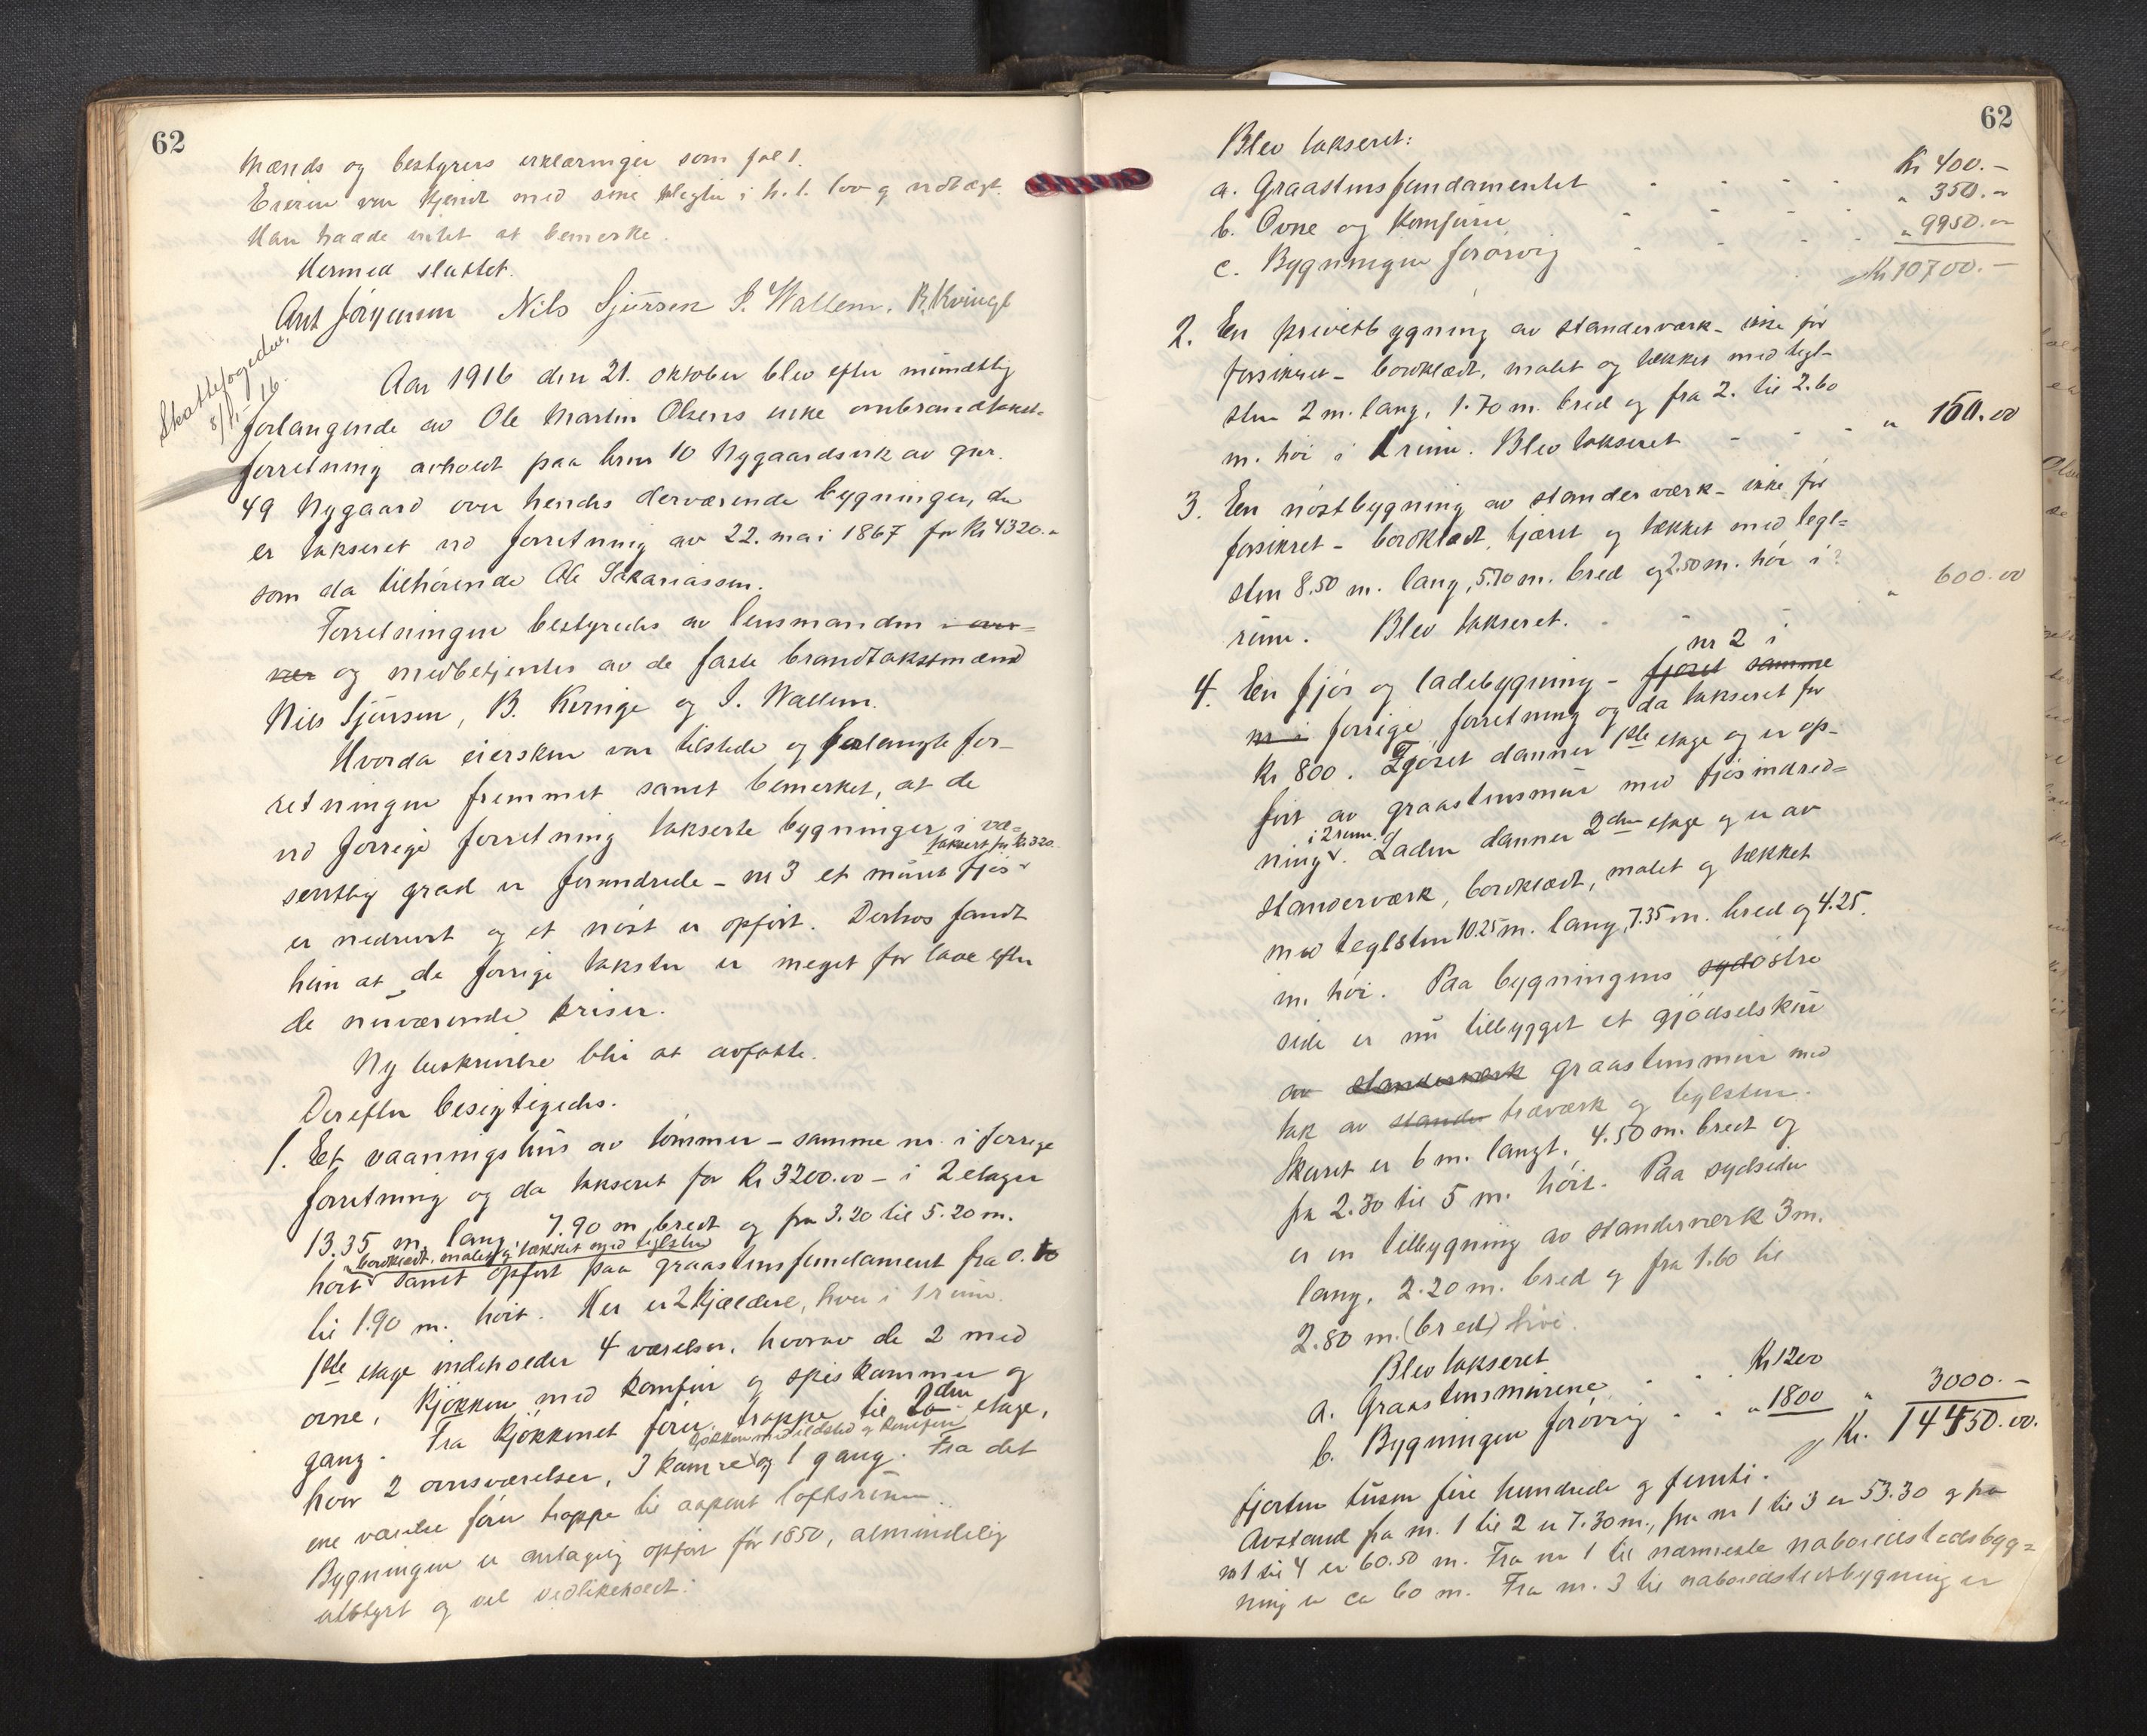 62
mænds og bestyrers erklæringer som fol 1.
Eieren var kjendt med sine pligter i h. t. lov og vedtægt.
Han hadde intet at bemerke.
Hermed sluttet.
Ant Jørgensen Nils Sjursen I. Wallem. B. Kvinge
Skattefogeden,
8/11-16.
Aar 1916 den 21. oktober blev efter mundtlig
forlangende av Ole Martin Olsens enke ombrandtakst-
forretning avholdt paa brnr 10 Nygaardsvik av gnr.
49 Nygaard over hendes derværende bygninger, der
er takseret ved forretning av 22. mai 1867 for Kr 4320.-
som da tilhørende Ole Sakariassen.
Forretningen bestyredes av lensmanden
og medbetjentes av de faste brandtakstmænd
Nils Sjursen, B. Kvinge og I. Wallem.
Hvorda eiersken var tilstede og forlangte for-
retningen fremmet samt bemerket, at de
ved forrige forretning takserte bygninger i væ-
sentlig grad er forandrede - nr 3 et muret fjøs takseret for Kr 320.
er nedrevet og et nøst er opført. Derhos fandt
hun at de forrige takster er meget for lave efter
de nuværende priser.
Ny beskrivelse blir at avfatte.
Derefter besigtigedes.
1. Et vaaningshus av tømmer - samme nr. i forrige
forretning og da takseret for Kr 3200.00 - i 2 etager
13.35 m. lang 7.90 m. bredt og fra 3.20 til 5.20 m.
bordklædt, malet og tækket med teglsten
høit samt opført paa graastensfundament fra 0.10
til 1.90 m. høit. Her er 2 kjældere, hver i 1 rum.
1ste etage indeholder 4 værelser, hvorav de 2 med
ovne, kjøkken med komfur og spiskammer og
gang. Fra kjøkkenet fører trappe til 2den etage,
kjøkken med ildsted og komfur
hvor 2 ovnsværelser, 3 kamre og 1 gang. Fra det
ene værelse fører trappe til aapent loftsrum.
Bygningen er antagelig opført før 1850, almindelig
utstyrt og vel vedlikeholdt.
62
Blev takseret:
a. Graastensfundamentet - - - - Kr 400.-
b. Ovne og komfurer - - - - " 350.-
c. Bygningen forøvrig - - - - " 9950.-
Kr 10700.-
2. En privetbygning av standerværk - ikke før
forsikret - bordklædt, malet og tækket med tegl-
sten 2 m. lang, 1.70 m. bred og fra 2. til 2.60
m. høi i 1 rum. Blev takseret - - - " 150.00
3. En nøstbygning av standerværk - ikke før
forsikret - bordklædt, tjæret og tækket med tegl=
sten 8.50 m. lang, 5.70 m. bred og 2.50 m. høi i 2
rum. Blev takseret. - - " 600.00
nr 2 i
4. En fjøs og ladebygning - fjøset samme
nr i forrige forretning og da takseret for
Kr 800. Fjøset danner 1ste etage og er op-
ført av graastensmur med fjøsindred=
i 2 rum.
ning. Laden danner 2den etage og er av
standerværk, bordklædt, malet og tækket
med teglsten 10.25 m. lang, 7.35 m. bred og 4.25.
m. høi. Paa bygningens sydøstre
side er nu tilbygget et gjødselskur
av standerværk graastensmur med
tak av stander træværk og teglsten.
Skuret er 6 m. langt, 4.50 m. bredt og
fra 2.30 til 5 m. høit. Paa sydsiden
er en tilbygning av standerværk 3 m.
lang, 2.20 m. bred og fra 1.60 til
2.80 m. (bred) høi.
Blev takseret
a. Graastensmurene - - - Kr 1200
b. Bygningen forøvrig - - - " 1800 " 3000.-
Kr. 14450.00.
Fjorten tusen fire hundrede og femti.
Avstand fra nr. 1 til 2 er 7.30 m., fra nr 1 til 3 er 53.30 og fra
nr 1 til 4 er 60.50 m. Fra nr 1 til nærmeste naboildstedsbygg=
ning er ca 60 m. Fra nr. 3 til naboildstedsbygning er